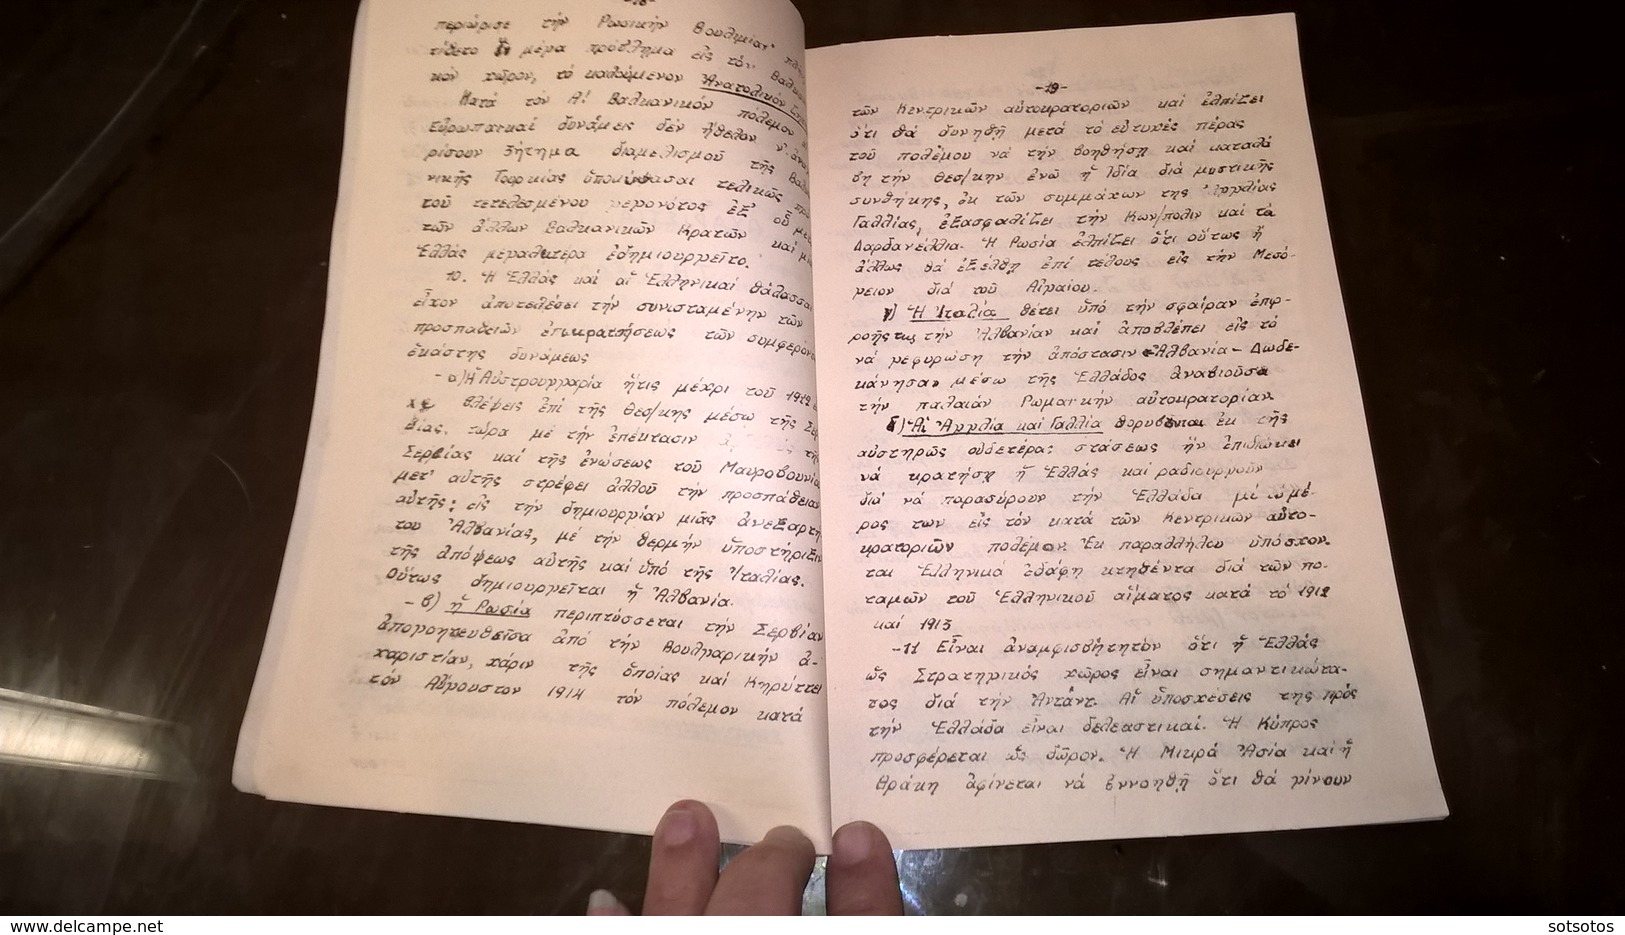 -18-
περιώρισε τήν Ρωσικήν Βουλιμίαν
τίθετο μέγα πρόβλημα εἰς τόν
κόν χῶρον, τό καλούμενον Ἀνατολικόν
Κατά τόν Α! Βαλκανικόν πόλεμον
Εὐρωπαικαί δυνάμεις δέν ἤθελον
ρίσουν ζήτημα διαμελισμοῦ τῆς
νικῆς Τουρκίας ὑποκύψασαι τελικῶς
τοῦ τετελεσμένου γεγονότος ἐξ' οὗ
τῶν ἄλλων Βαλκανικῶν Κρατῶν καί
Ἑλλάς μεγαλυτέρα ἐδημιουργεῖτο.
10. Ἡ Ἑλλάς καί αἱ Ἑλληνικαί θάλασσαι
εἶχον ἀποτελέσει τήν συνισταμένην τῶν
προσπαθειῶν ἐπικρατήσεως τῶν συμφερόν
ἑκάστης δυνάμεως
-α) Ἡ Αὐστρουγγαρία ἥτις μέχρι τοῦ 1912
βλέψεις ἐπί τῆς Θεσ/κης μέσω τῆς Σερ
βίας. τώρα μέ τήν ἐπέκτασιν
Σερβίας καί τῆς ἑνώσεως τοῦ Μαυροβουνίο
μετ' αὐτῆς στρέφει ἀλλοῦ τήν προσπάθειαν
αὐτῆς: εἰς τήν δημιουργίαν μιᾶς ἀνεξαρτή
του Ἀλβανίας, μέ τήν θερμήν ὑποστήριξιν
τῆς ἀπόψεως αὐτῆς καί ὑπό τῆς Ἰταλίας.
Οὕτως δημιουργεῖται ἡ Ἀλβανία.
-β) ἡ Ρωσία περιπτύσσεται τήν Σερβίαν
ἀπογοητευθεῖσα ἀπό τήν Βουλγαρικήν ἀ-
χαριστίαν, χάριν τῆς ὁποίας καί Κηρύττει
τόν Αὔγουστον 1914 τόν πόλεμον κατά
-19-
τῶν Κεντρικῶν αὐτοκρατοριῶν καί ἐλπίζει
ὅτι θά δυνηθῆ μετά τό εὐτυχές πέρας
τοῦ πολέμου νά τήν βοηθήση καί καταλά
βη τήν Θεσ/κην ἐνῶ ἡ ἰδία διά μυστικῆς
συνθήκης, ἐκ τῶν συμμάχων της Ἀγγλίας
Γαλλίας, ἐξασφαλίζει τήν Κων/πολιν καί τά
Δαρδανέλλια. Ἡ Ρωσία ἐλπίζει ὅτι οὕτως ἤ
ἄλλως θά ἐξέλθη ἐπί τέλους εἰς τήν Μεσό-
γειον διά τοῦ Αἰγαίου.
γ) Ἡ Ἰταλία θέτει ὑπό τήν σφαῖραν ἐπιρ-
ροῆς της τήν Ἀλβανίαν καί ἀποβλέπει εἰς τό
νά γεφυρώση τήν ἀπόστασιν Ἀλβανία - Δωδε-
κάνησα μέσω τῆς Ἑλλάδος ἀναβιοῦσα
τήν παλαιάν Ρωμαικήν αὐτοκρατορίαν.
δ) Αἱ Ἀγγλία καί Γαλλία θορυβοῦνται ἐκ τῆς
αὐστηρῶς οὐδετέρας στάσεως ἥν ἐπιδιώκει
νά κρατήση ἡ Ἑλλάς καί ραδιουργοῦν
διά νά παρασύρουν τήν Ἑλλάδα μέ τό μέ-
ρος των εἰς τόν κατά τῶν Κεντρικῶν αὐτο-
κρατοριῶν πόλεμον. Ἐκ παραλλήλου ὑπόσχον-
ται Ἑλληνικά ἐδάφη κτηθέντα διά τῶν πο-
ταμῶν τοῦ Ἑλληνικοῦ αἵματος κατά τό 1912
καί 1913
-11 Εἶναι ἀναμφισβήτητόν ὅτι ἡ Ἑλλάς
ὡς Στρατηγικός χῶρος εἶναι σημαντικώτα-
τος διά τήν Ἀντάντ. Αἱ ὑποσχέσεις της πρός
τήν Ἑλλάδα εἶναι δελεαστικαί. Ἡ Κύπρος
προσφέρεται ὡς δῶρον. Ἡ Μικρά Ἀσία καί ἡ
Θράκη ἀφίνεται νά ἐννοηθῆ ὅτι θά γίνουν
www.delcampe.net
sotsotos